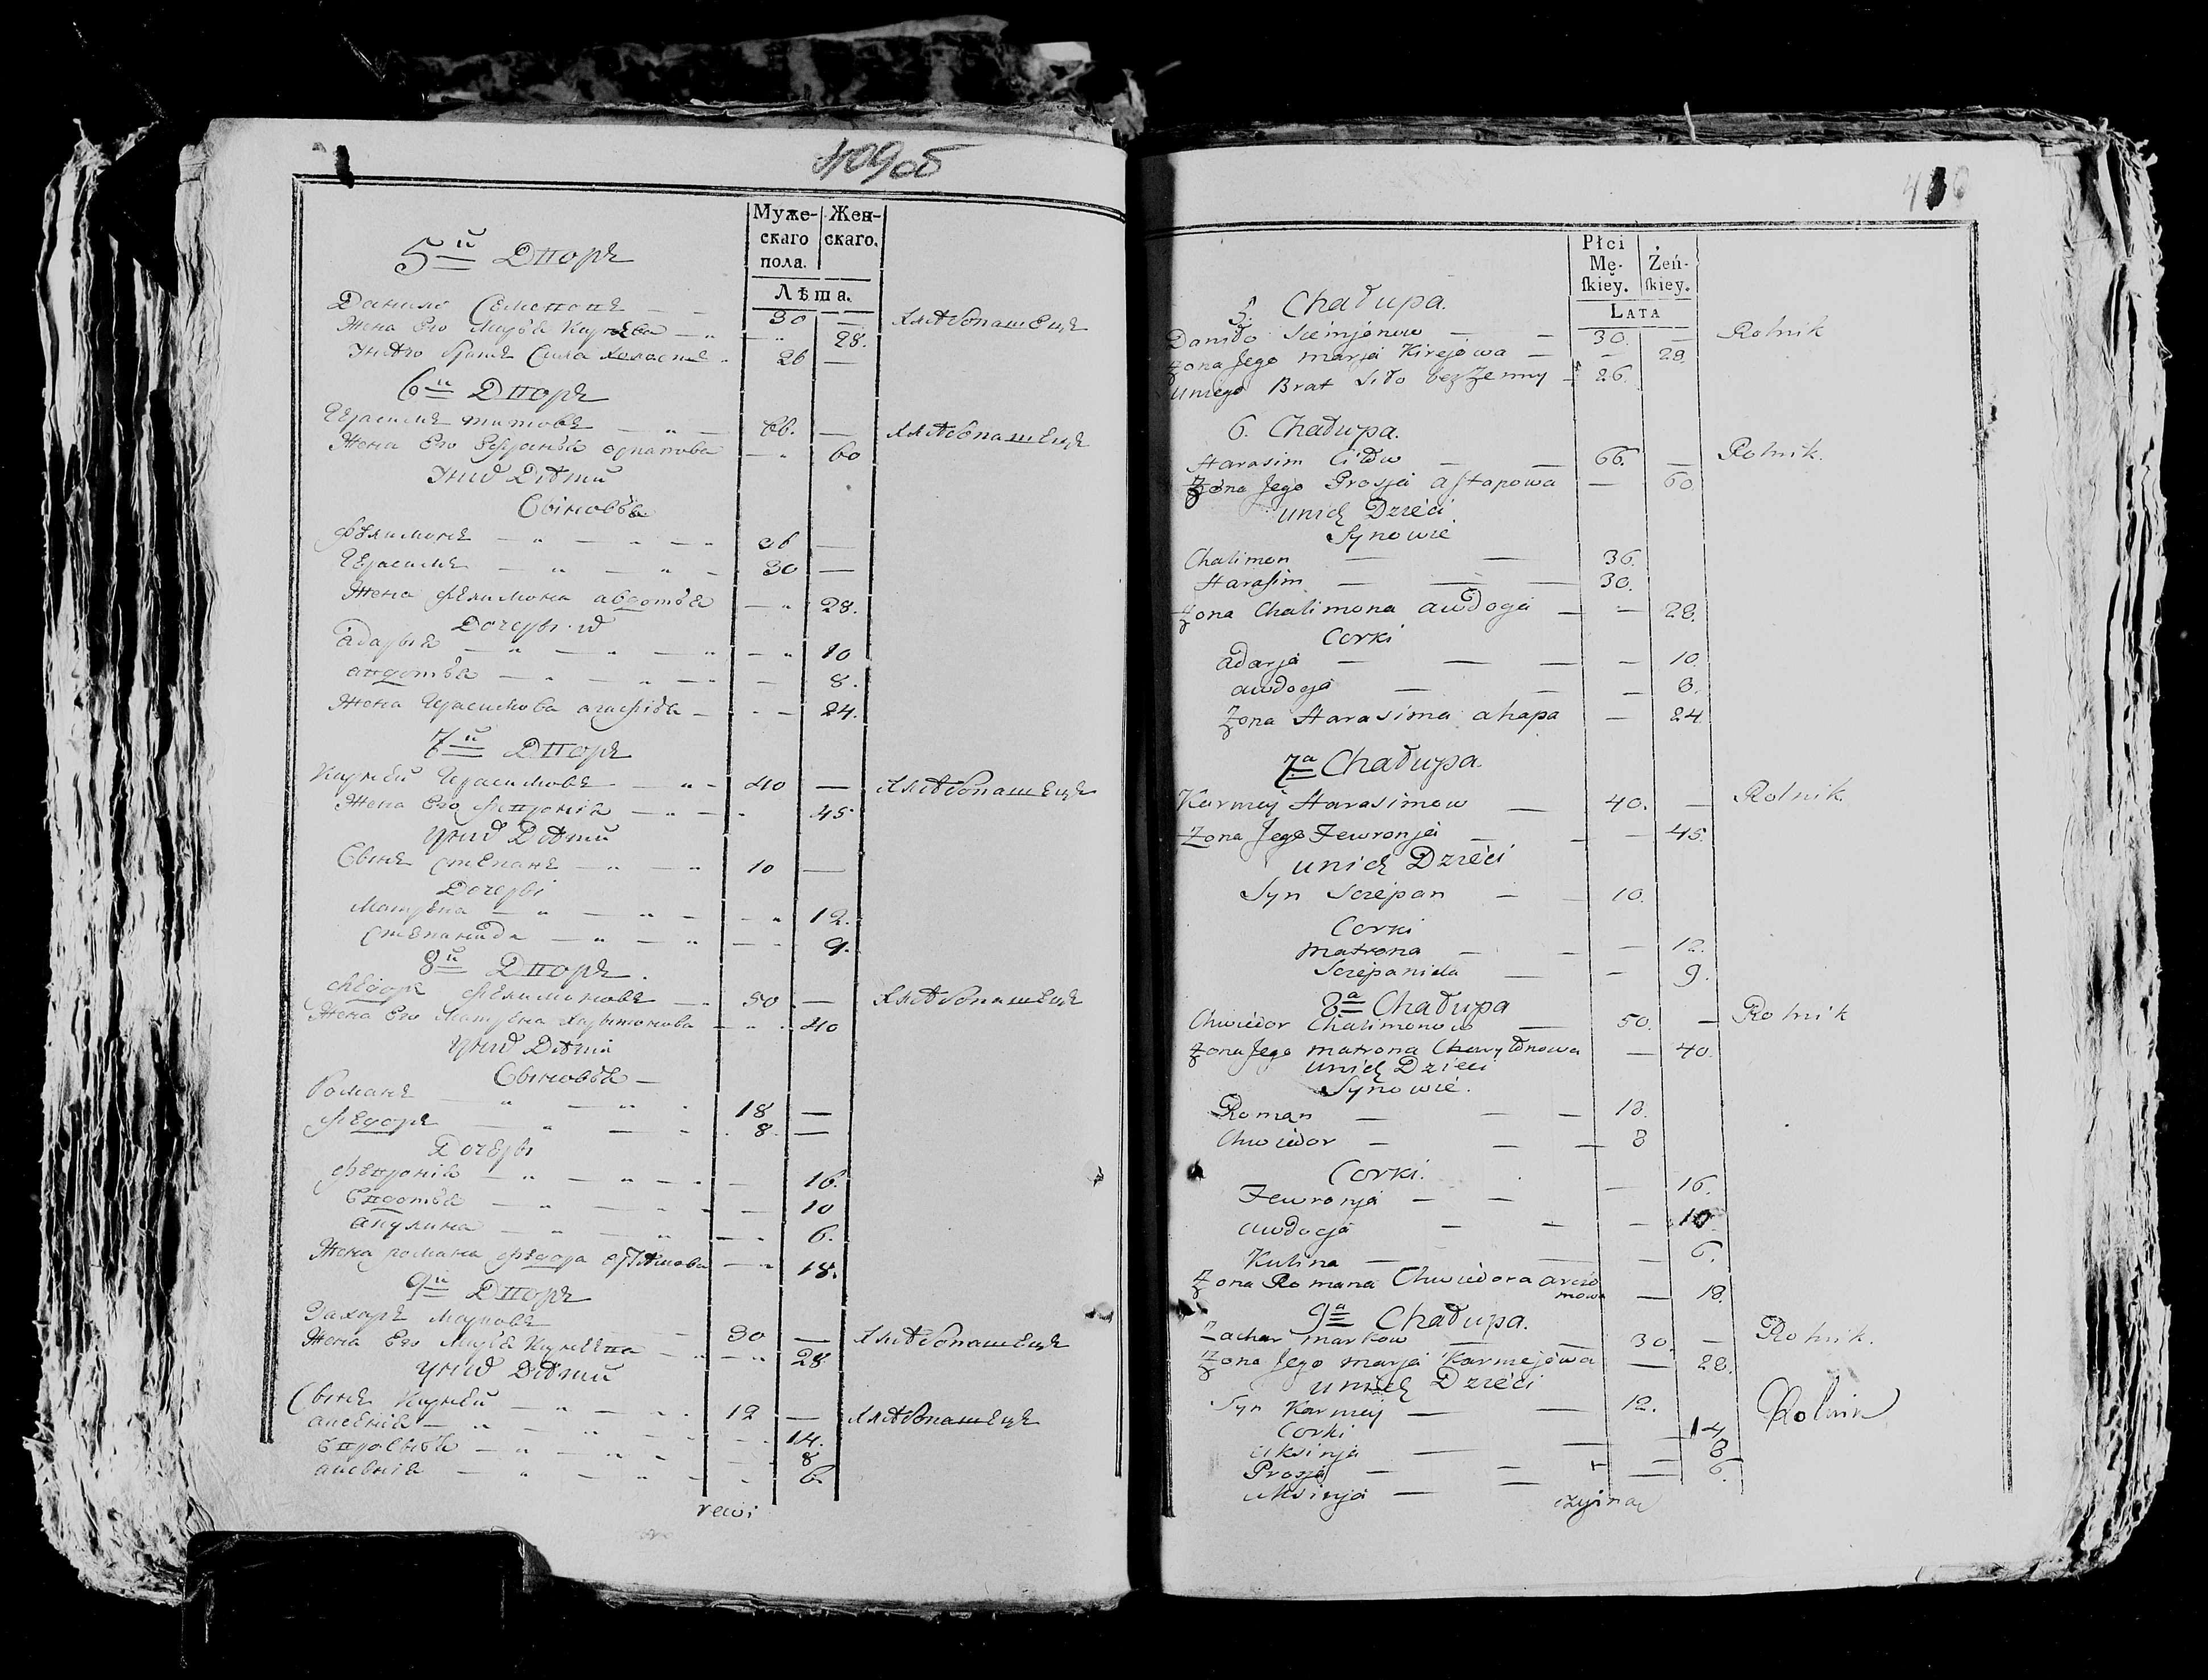 409 об
Муже-
скаго
пола.
Жен-
скаго.
Лѣта.
5й Дворъ
Данило Семеновъ — — 30 — хлѣбопашецъ
Жена Его Марья Кирѣева — — 28.
У него братъ Сила холостъ 26 —
6й Дворъ
Герасимъ Титовъ — — 66. — хлѣбопашецъ
Жена Его Ефросинья — 60
У них Дѣти
Сыновья
Филимонъ — — 36 —
Герасимъ — — 30 —
Жена Филимона авдотья — 28.
Дочери
адарья — — 10
авдотья — — 8.
Жена Герасимова агафья — — 24.
7й Дворъ
Карнѣй Герасимовъ — 40 — хлѣбопашецъ
Жена Его Февронія — — 45
У них Дѣти
Сынъ Степанъ — — 10 —
Дочери
Матрена — — 12.
Степанида — — 9.
8й Дворъ.
Федоръ Филимоновъ — 50 — хлѣбопашецъ
Жена Его Матрена Харытонова — 40
У них Дѣти
Сыновья —
Романъ — — 18 —
Федоръ — — 8 —
Дочери
Февронія — — 16.
Евдотья — — 10
акулина — — 6.
Жена Романа Федора — 18.
9й Дворъ
Захаръ Марковъ — 30 — хлѣбопашецъ
Жена Его Марья Карнѣева — 28
У них Дѣти
Сынъ Карнѣй — — 12 — хлѣбопашецъ
аксенія — — 14.
— — 8
аксенія — — 6.
rewi
Płci
Mę-
ſkiey.
Żeń-
ſkiey.
LATA
5. Chałupa.
Daniło Siemjonow — — 30. — Rolnik
Zona Jego marja Kirejowa — — 28.
Uniego Brat Siło bezżenny — 26.
6. Chałupa.
Harasim Citow — — 66. — Rolnik.
Zona Jego Prosja astapowa — 60.
unich Dzieci
Synowie
Chalimon — — 36.
Harasim — — 30.
Zona Chalimona awdoga — — 28.
Corki
adarja — — — — 10.
awdocja — — — 8.
Zona Harasima ahapa — 24
7a Chałupa.
Karniej Harasimow — 40. — Rolnik.
Zona Jego Fewronja — — 45.
unich Dzieci
Syn Sciepan — — 10.
Corki
Matrona — — — 12.
Sciepanida — — 9.
8a Chałupa
Chwiedor Chalimonow — 50. — Rolnik
Zona Jego matrona Charytonowa — 40.
unich Dzieci
Synowie.
Roman — — — 18.
Chwiedor — — — 8
Corki.
Fewronja — — — 16.
awdocja — — — 10.
Kulina — — — 6.
Zona Romana Chwiedora arcio
mowa — 18.
9a Chałupa.
Zachar markow — — 30. — Rolnik.
Zona Jego marja Karniejowa — 28.
unich Dzieci
Syn Karniej — — 12. Rolnik
Corki — 14
Uksinja — — — 8
Prosja — — — 6.
Uksinja —